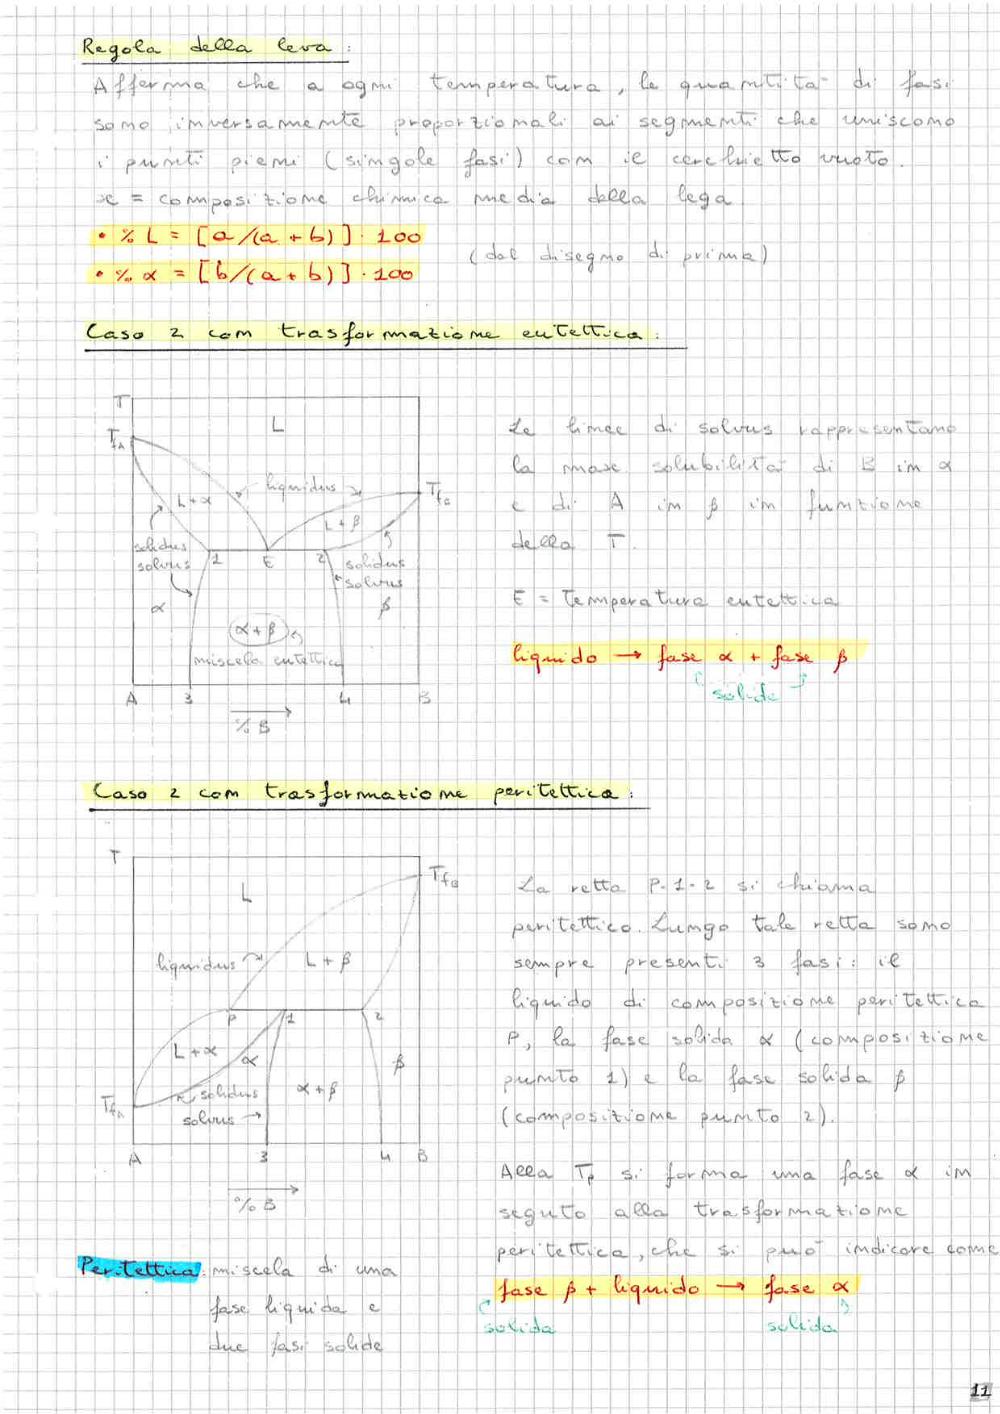 Regola della leva :
Afferma che a ogni temperatura, le quantità di fasi
sono inversamente proporzionali ai segmenti che uniscono
i punti pieni (singole fasi) con il cerchietto vuoto.
x = composizione chimica media della lega
• % L = [a/(a + b)] · 100
(dal disegno di prima)
• % α = [b/(a + b)] · 100
Caso 2 con trasformazione eutettica :
T
L
TfA
liquidus
TfB
L+α
L+β
solidus
solvus
1
E
2
solidus
solvus
α
β
α+β
miscela eutettica
A
3
4
B
% B
Le linee di solvus rappresentano
la max solubilità di B in α
e di A in β in funzione
della T.
E = Temperatura eutettica
liquido → fase α + fase β
solide
Caso 2 con trasformazione peritettica :
T
TfB
L
liquidus
L + β
P
1
2
L+α
α
β
solidus
α+β
TfA
solvus
A
3
4
B
% B
La retta P-1-2 si chiama
peritettico. Lungo tale retta sono
sempre presenti 3 fasi: il
liquido di composizione peritettica
P, la fase solida α (composizione
punto 1) e la fase solida β
(composizione punto 2).
Alla Tp si forma una fase α in
seguto alla trasformazione
peritettica, che si può indicare come
fase β + liquido → fase α
solida
solida
Peritettica: miscela di una
fase liquida e
due fasi solide
11